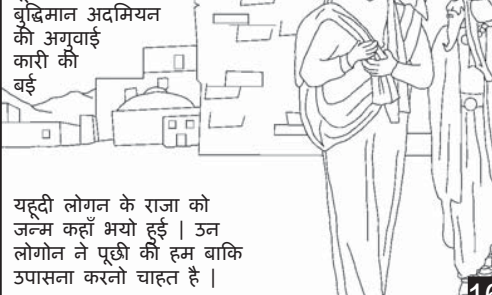 बुद्धिमान अदमियन
की अगुवाई
कारी की
बई
यहूदी लोगन के राजा को
जन्म कहाँ भयो हुई | उन
लोगोन ने पूछी की हम बाकि
उपासना करनो चाहत है |